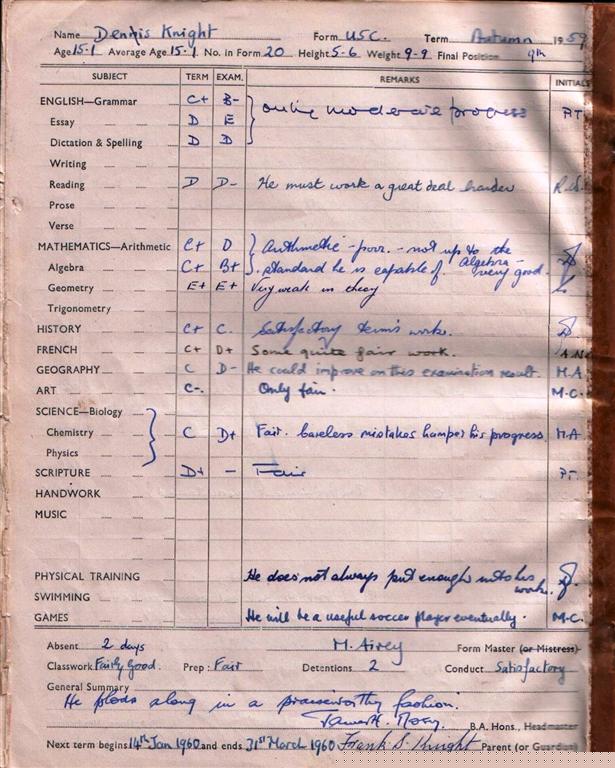 Name Dennis Knight Form U5C. Term Autumn 1959
Age 15·1 Average Age 15·1 No. in Form 20 Height 5-6 Weight 9-9 Final Position 9th
SUBJECT TERM EXAM. REMARKS INITIALS
ENGLISH—Grammar C+ B- Only moderate progress P.T.
Essay D E
Dictation & Spelling D D
Writing
Reading D D- He must work a great deal harder
Prose
Verse
MATHEMATICS—Arithmetic C+ D Arithmetic - poor. - not up to the
Algebra C+ B+ standard he is capable of. Algebra - very good.
Geometry E+ E+ Very weak in theory
Trigonometry
HISTORY C+ C. Satisfactory term's work.
FRENCH C+ D+ Some quite fair work. A.N.
GEOGRAPHY C D- He could improve on this examination result. M.A
ART C-. Only fair. M.C.
SCIENCE—Biology
Chemistry C D+ Fair. Careless mistakes hamper his progress M.A
Physics
SCRIPTURE D+ — Fair P.T.
HANDWORK
MUSIC
PHYSICAL TRAINING He does not always put enough into his work.
SWIMMING
GAMES He will be a useful soccer player eventually. M.C.
Absent 2 days M. Airey Form Master (or Mistress)
Classwork Fairly Good. Prep: Fair Detentions 2 Conduct Satisfactory
General Summary
He plods along in a praiseworthy fashion.
B.A. Hons., Headmaster
Next term begins 14th Jan 1960 and ends 31st March 1960 Frank S. Knight Parent (or Guardian)